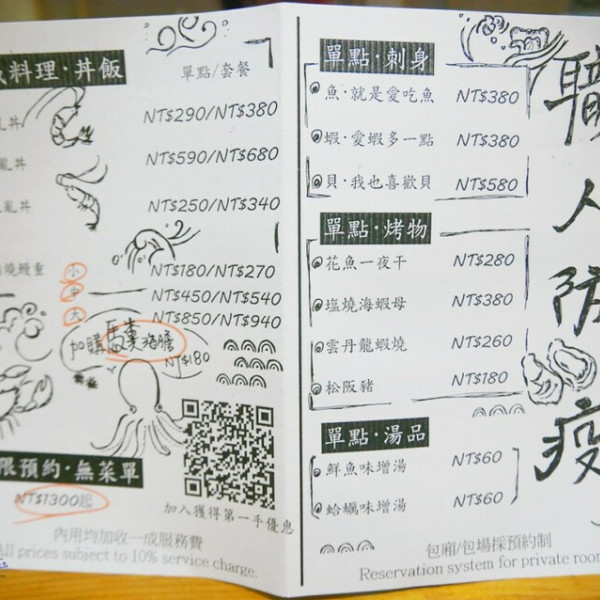 料理·丼飯
單點/套餐
丼 NT$290/NT$380
亂丼 NT$590/NT$680
亂丼 NT$250/NT$340
燒鰻重 小 NT$180/NT$270
中 NT$450/NT$540
大 NT$850/NT$940
加購馬糞海膽
NT$180
限預約·無菜單
NT$1300起
加入獲得第一手優惠
內用均加收一成服務費
All prices subject to 10% service charge.
單點·刺身
魚·就是愛吃魚 NT$380
蝦·愛蝦多一點 NT$380
貝·我也喜歡貝 NT$580
單點·烤物
花魚一夜干 NT$280
塩燒海蝦母 NT$380
雲丹龍蝦燒 NT$260
松阪豬 NT$180
單點·湯品
鮮魚味增湯 NT$60
蛤蠣味增湯 NT$60
包廂/包場採預約制
Reservation system for private room
職人防疫